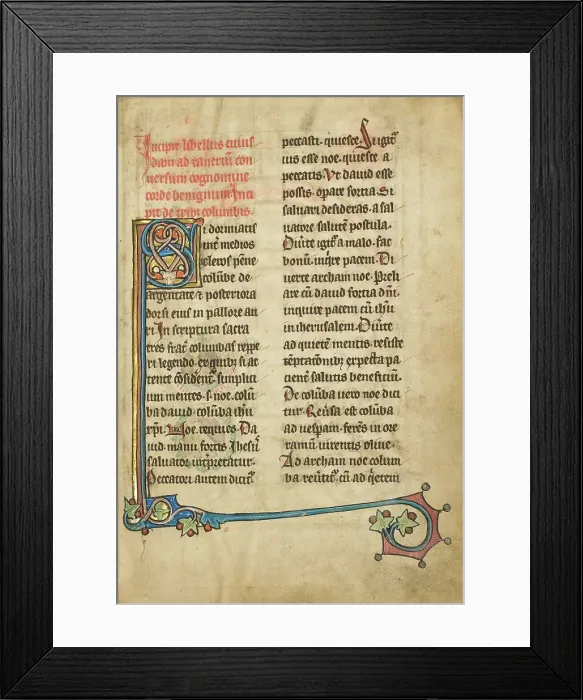 Incipit libellus cuius
dam ad raneriū con
uersum cognomine
corde benignum Inci
pit de tribȝ columbis.
Si dormiatis
int̄ medios
cleros pēne
colūbe de
argentate ⁊ posteriora
dorsi eius in pallore au
ri In scriptura sacra
tres fratr̄ columbas reppe
ri legendo. ex quibȝ si at
tente ꝯsident̄ simplici
um mentes. s. noe. colū
ba dauid. colūba ihū
xp̄i. Noe. requies. Da
uid. manu fortis Ihesu͛
saluator int̄pretatur.
Peccatori autem dicit͛
peccasti. quiesce. Si igit͛
uis esse noe. quiesce a
peccatis. Vt dauid esse
possis. op̄are fortia. Si
saluari desideras. a sal
uatore salutē postula.
Diu͛te igit͛ a malo. fac
bonū. inq̄re pacem. Di
uerte archam noe. Preli
are cū dauid fortia dn̄i.
inquire pacem cū ihū
in iherusalem. Diu͛te
ad quietē mentis. resiste
tēptaconibȝ. expecta pa
cient͛ salutis beneficiū.
De columba uero noe dici
tur. Reu͛sa est colūba
ad uesp̄am. ferēs in ore
ramū uirentis oliue.
Ad archam noe colum
ba reu͛tit͛. cū ad q̄etem